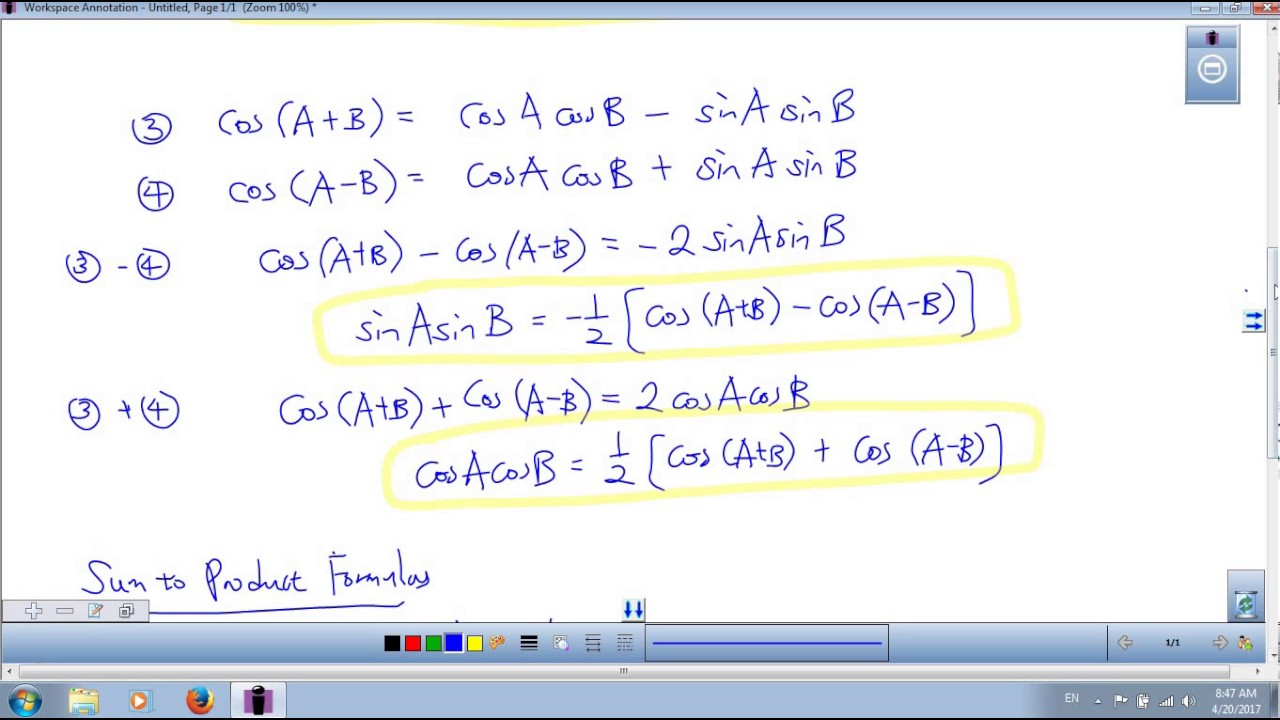 Workspace Annotation - Untitled, Page 1/1 (Zoom 100%) *
③ cos (A+B) = cos A cos B - sin A sin B
④ cos (A-B) = cos A cos B + sin A sin B
③ - ④ cos (A+B) - cos (A-B) = -2 sin A sin B
sin A sin B = -1/2 [cos (A+B) - cos (A-B)]
③ + ④ Cos (A+B) + Cos (A-B) = 2 cos A cos B
cos A cos B = 1/2 [cos (A+B) + cos (A-B)]
Sum to Product Formulas
1/1
EN
8:47 AM
4/20/2017